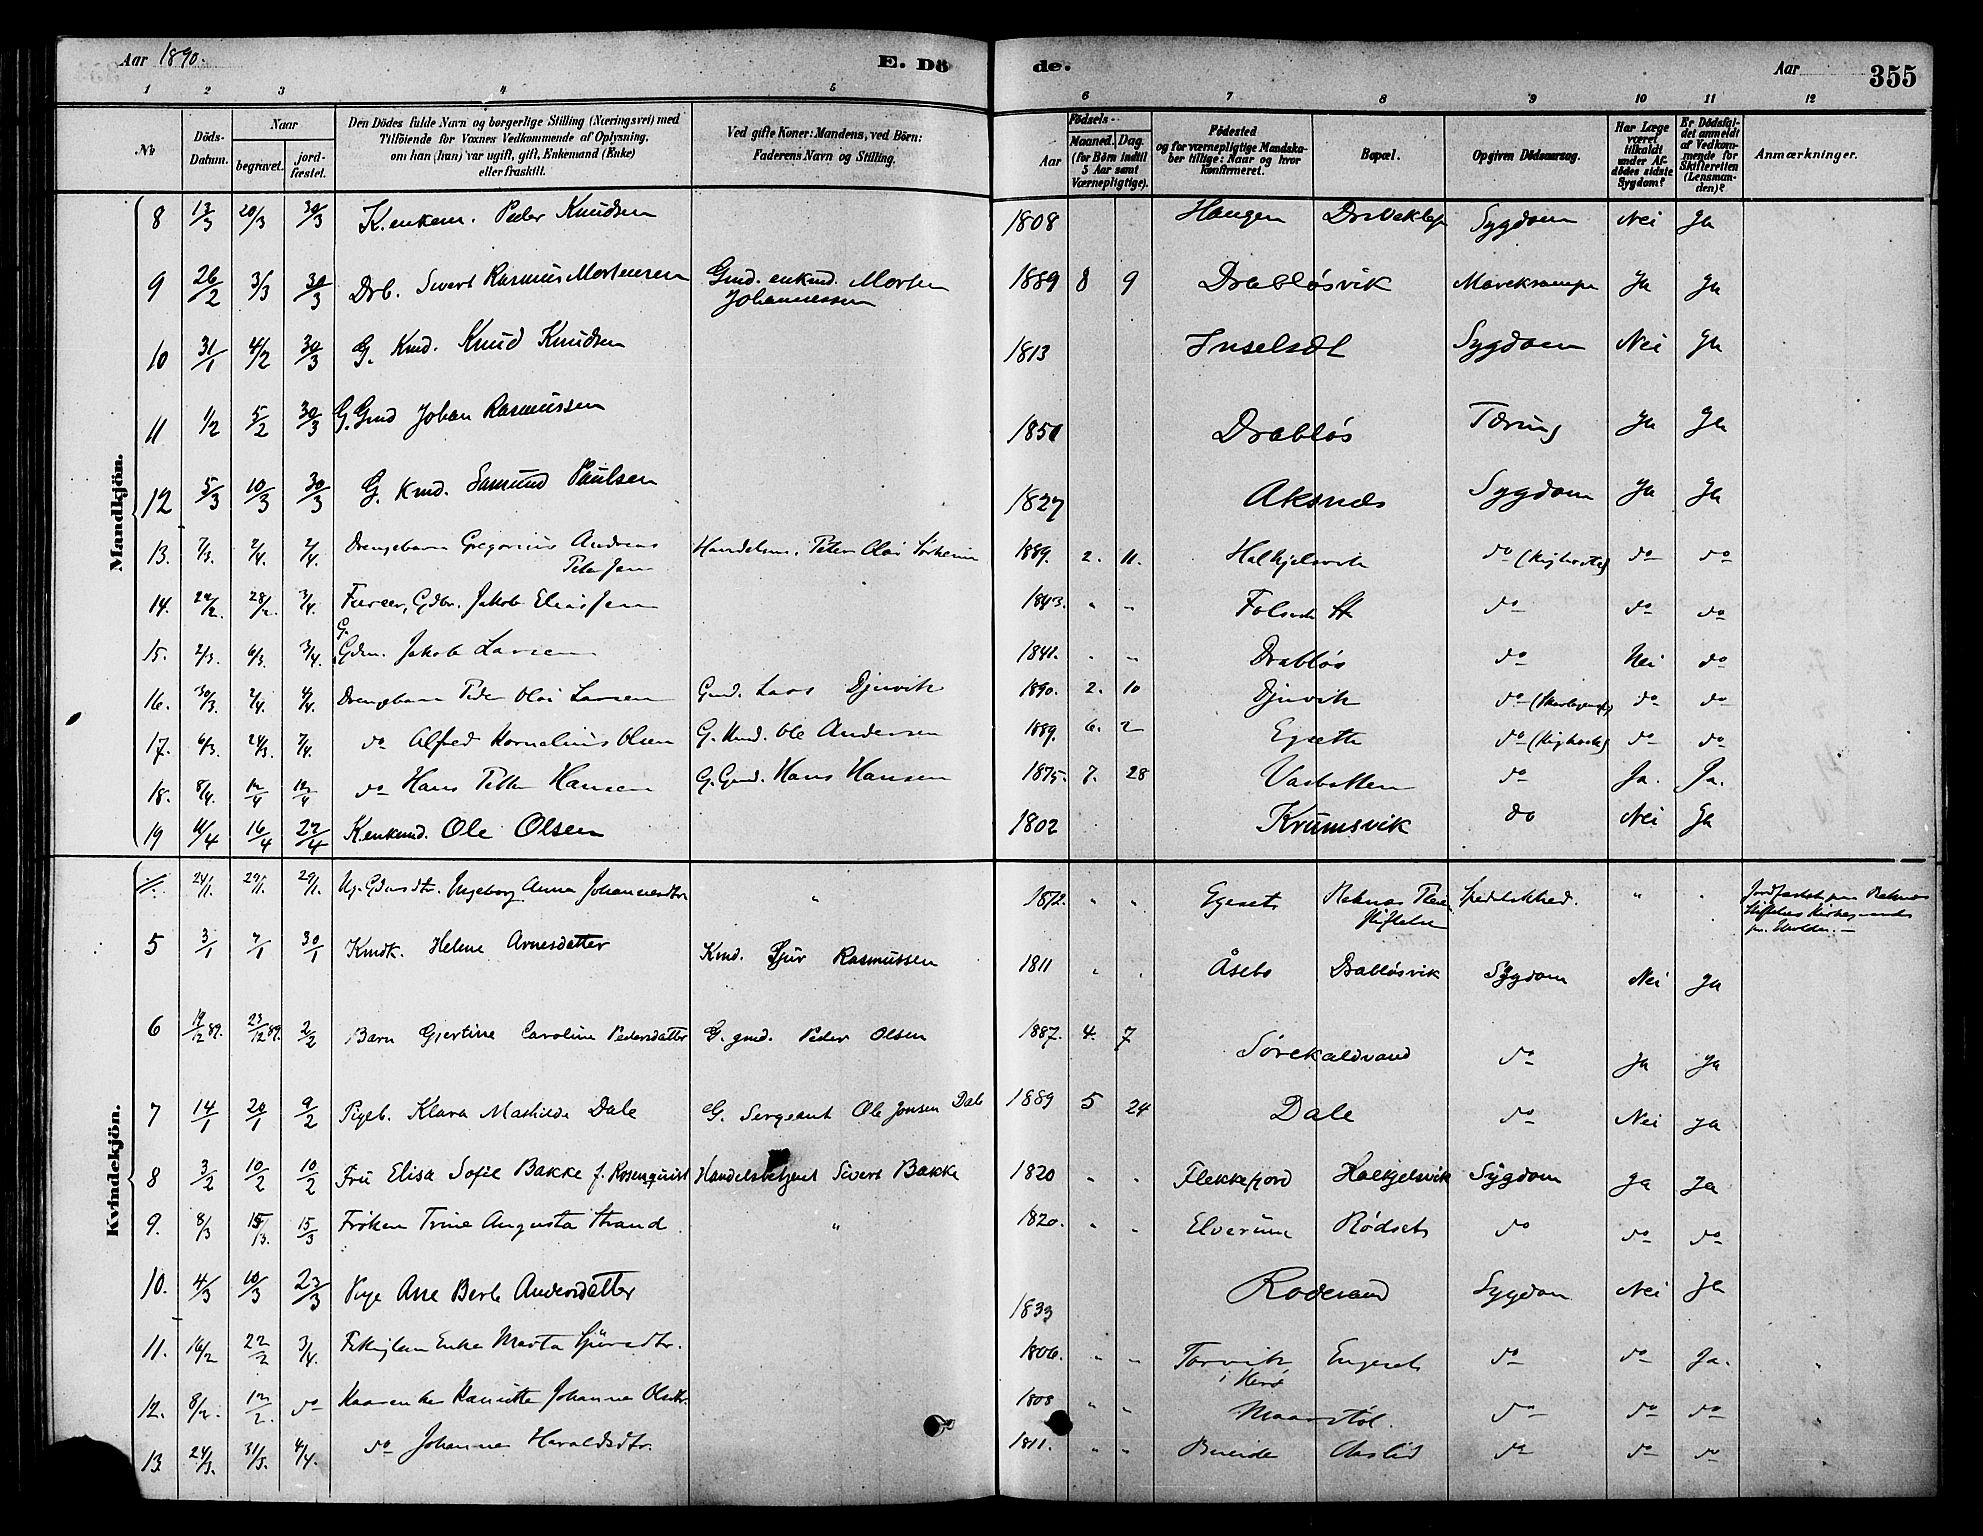 Aar 1890.
E. Dö
de.
Aar
355
1 2 3 4 5 6 7 8 9 10 11 12
No
Döds-Datum.
Naar
begravet.
jord-fæstet.
Den Dödes fulde Navn og borgerlige Stilling (Næringsvei) med
Tilföiende for Voxnes Vedkommende af Oplysning,
om han (hun) var ugift, gift, Enkemand (Enke)
eller fraskilt.
Ved gifte Koner: Mandens, ved Börn:
Faderens Navn og Stilling.
Födsels-
Aar
Maaned. Dag.
(for Börn indtil
5 Aar samt
Værnepligtige).
Födested
og for værnepligtige Mandska-
ber tillige: Naar og hvor
konfirmeret.
Bopæl.
Opgiven Dödsaarsag.
Har Læge
været
tilkaldt
under Af-
dödes sidste
Sygdom?
Er Dödsfal-
det anmeldt
af Vedkom-
mende for
Skifteretten
(Lensman-
den)?
Anmærkninger.
Mandkjön.
8 13/3 20/3 30/3 K. enkem. Peder Knudsen 1808 Haugen Sygdom Nei Ja
9 26/2 3/3 30/3 Drb. Sivert Rasmus Mortensen Gmd. enkmd. Morten 1889 8 9 Drabløsvik Mavekrampe Ja Ja
Johannessen
10 31/1 4/2 30/3 G. Kmd. Knud Knudsen 1813 Inselset Sygdom Nei Ja
11 1/2 5/2 30/3 G. Gmd Johan Rasmussen 1851 Drabløs Tæring Ja Ja
12 5/3 10/3 30/3 G. Kmd. Samund Paulsen 1827 Aksnes Sygdom Ja Ja
13. 7/3. 2/4. 2/4. Drengebarn Gregorius Andreas Handelsm. Peter Olai 1889. 2. 11. Halkjelsvik do (Kighoste) do do
Peter
14. 22/2. 28/2. 3/4. Gdbr. Jakob Elias 1843. " " do do do
15. 2/3. 6/3. 3/4. G. Gdm. Jakob Larsen 1841. " " Drabløs do Nei do
16. 30/3. 2/4. 4/4. Drengebarn Peder Olai Larsen Gmd. Lars Djuvik 1890. 2. 10 Djuvik do do do
17. 6/3. 24/3. 7/4. do Alfred Kornelius Olsen G. Kmd. Ole Andersen 1889. 6. 2 Egseth do (Kighoste) do do
18. 8/4. 12/4 12/4 do Hans Petter Hansen G. Gmd. Hans Hansen 1875. 7. 28 do Ja. Ja.
19 11/4 16/4 27/4 K. enkmd. Ole Olsen 1802 Krumsvik do Nei Ja
Kvindekjön.
24/1. 29/1. 29/1. Ug. Gdmdtr. Ingeborg Anna Johannesdtr " 1872. " " Egeset Reknæs Spedalskhed. " "
Stiftelse
5 3/1 7/1 30/1 Kmdk. Helene Arnesdatter Kmd. Sjur Rasmussen 1811 " " Åsebø Drabløsvik Sygdom Nei Ja
6 19/12 89. 23/12 89. 2/2 Barn Gjertine Caroline Pedersdatter G. gmd. Peder Olsen 1887. 4. 7 Sørekaldvand do Ja Ja
7 14/1 20/1 9/2 Pigeb. Klara Mathilde Dale G. Sergeant Ole Jonsen Dale 1889 5 24 Dale do Nei Ja
8 3/2 10/2 10/2 Fru Elisa Sofie Bakke f. Rosenquist Handelsbetjent Sivert Bakke 1820 " " Flekkefjord Halkjelsvik Sygdom Ja Ja
9. 8/3 15/3. 15/3 Frøken Trine Augusta Strand " 1820. " " Elverum Rødset do do do
10. 4/3 10/3 23/3 Pige Ane Berte Andersdatter 1833 Sygdom Nei Ja
11. 16/2 22/2 3/4. Enke Marta Sjursdtr. 1806. " " Torvik Engeset do do Ja. "
i Herø
12. 8/2. 12/2. do Johanne 1808 " " do do do
13. 24/3. 31/3. 4/4. do Johanne Haraldsdtr. 1811. " " do do do